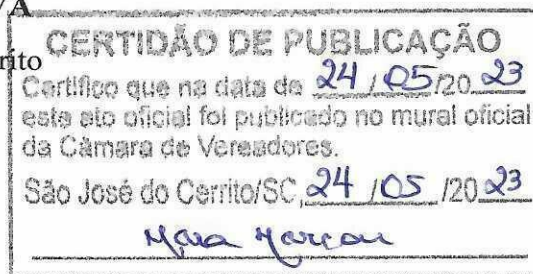 A
rito
CERTIDÃO DE PUBLICAÇÃO
Certifico que na data de 24 / 05 /20 23
este ato oficial foi publicado no mural oficial
da Câmara de Vereadores.
São José do Cerrito/SC, 24 / 05 /20 23